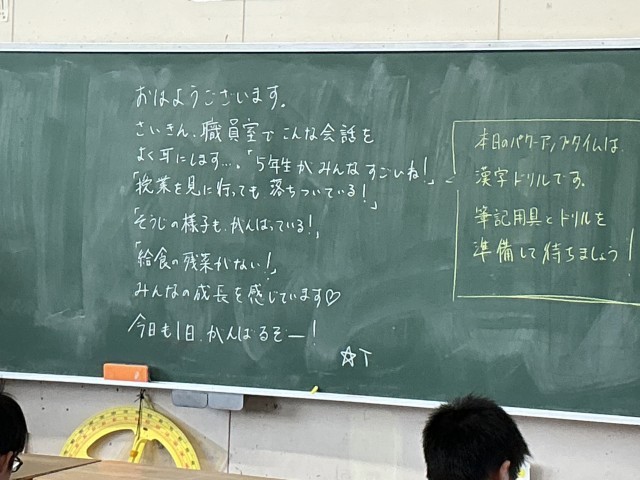 おはようございます。
さいきん、職員室でこんな会話を
よく耳にします…。「5年生がみんなすごいね!」
「授業を見に行っても落ちついている!」
「そうじの様子も、がんばっている!」
「給食の残菜がない!」
みんなの成長を感じています♡
今日も1日、がんばるぞー!
☆T
本日のパワーアップタイムは
漢字ドリルです。
筆記用具とドリルを
準備して待ちましょう!